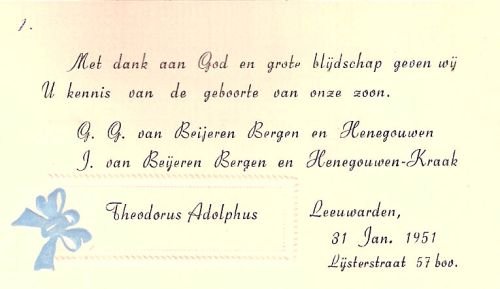 1.
Met dank aan God en grote blijdschap geven wij
U kennis van de geboorte van onze zoon.
G. G. van Beijeren Bergen en Henegouwen
J. van Beijeren Bergen en Henegouwen-Kraak
Theodorus Adolphus
Leeuwarden,
31 Jan. 1951
Lijsterstraat 57 bov.